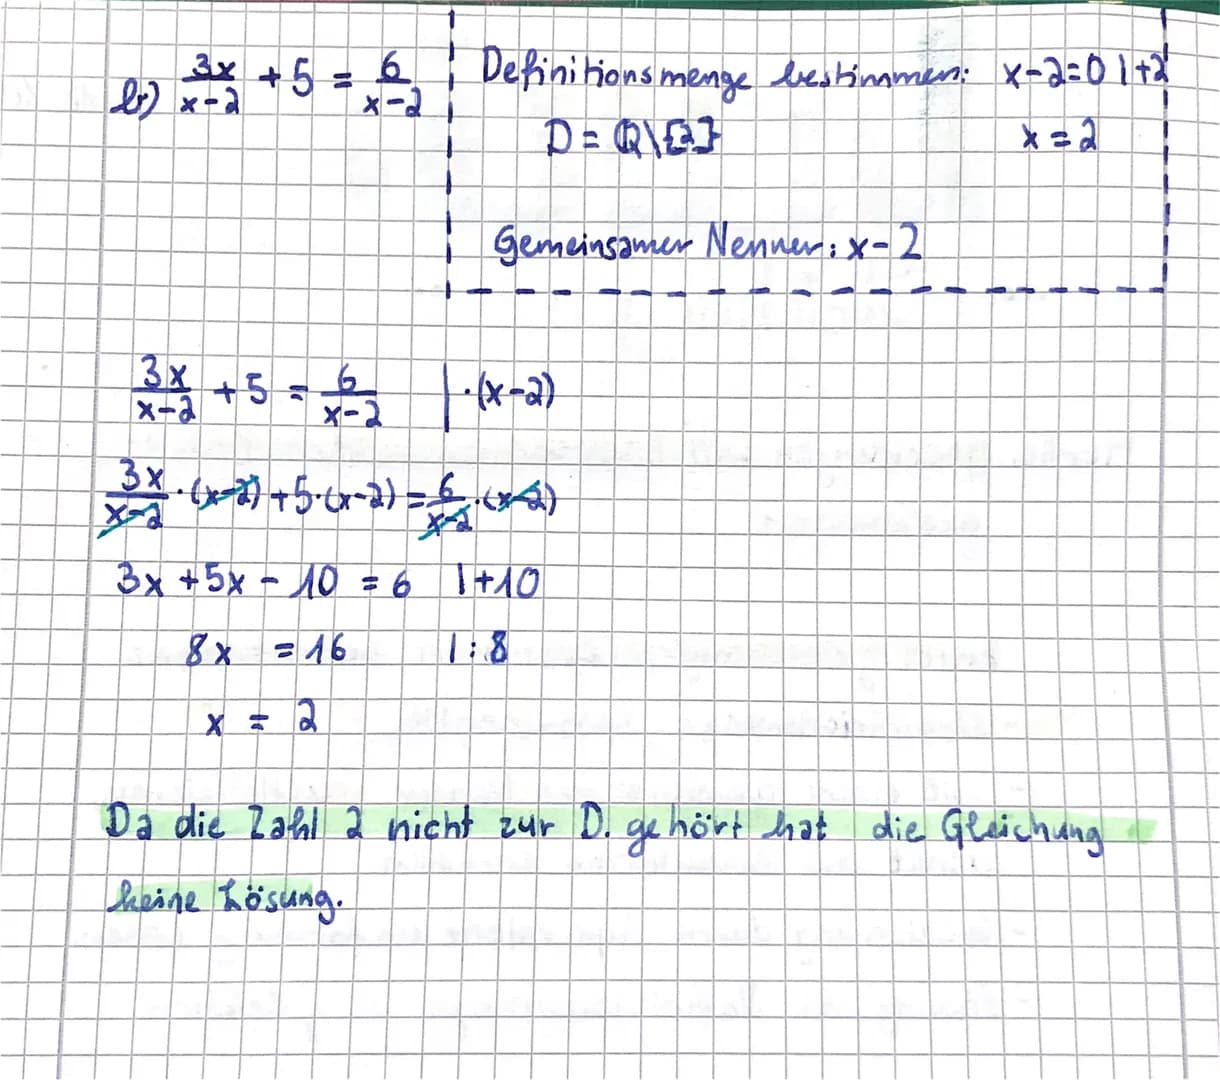 b) 3x/(x-2) + 5 = 6/(x-2)
Definitionsmenge bestimmen: x-2=0 |+2
D = ℚ\{2} x = 2
Gemeinsamer Nenner: x-2
3x/(x-2) + 5 = 6/(x-2) | ·(x-2)
3x/(x-2) · (x-2) + 5·(x-2) = 6/(x-2) · (x-2)
3x + 5x - 10 = 6 |+10
8x = 16 |:8
x = 2
Da die Zahl 2 nicht zur D. gehört hat die Gleichung
keine Lösung.